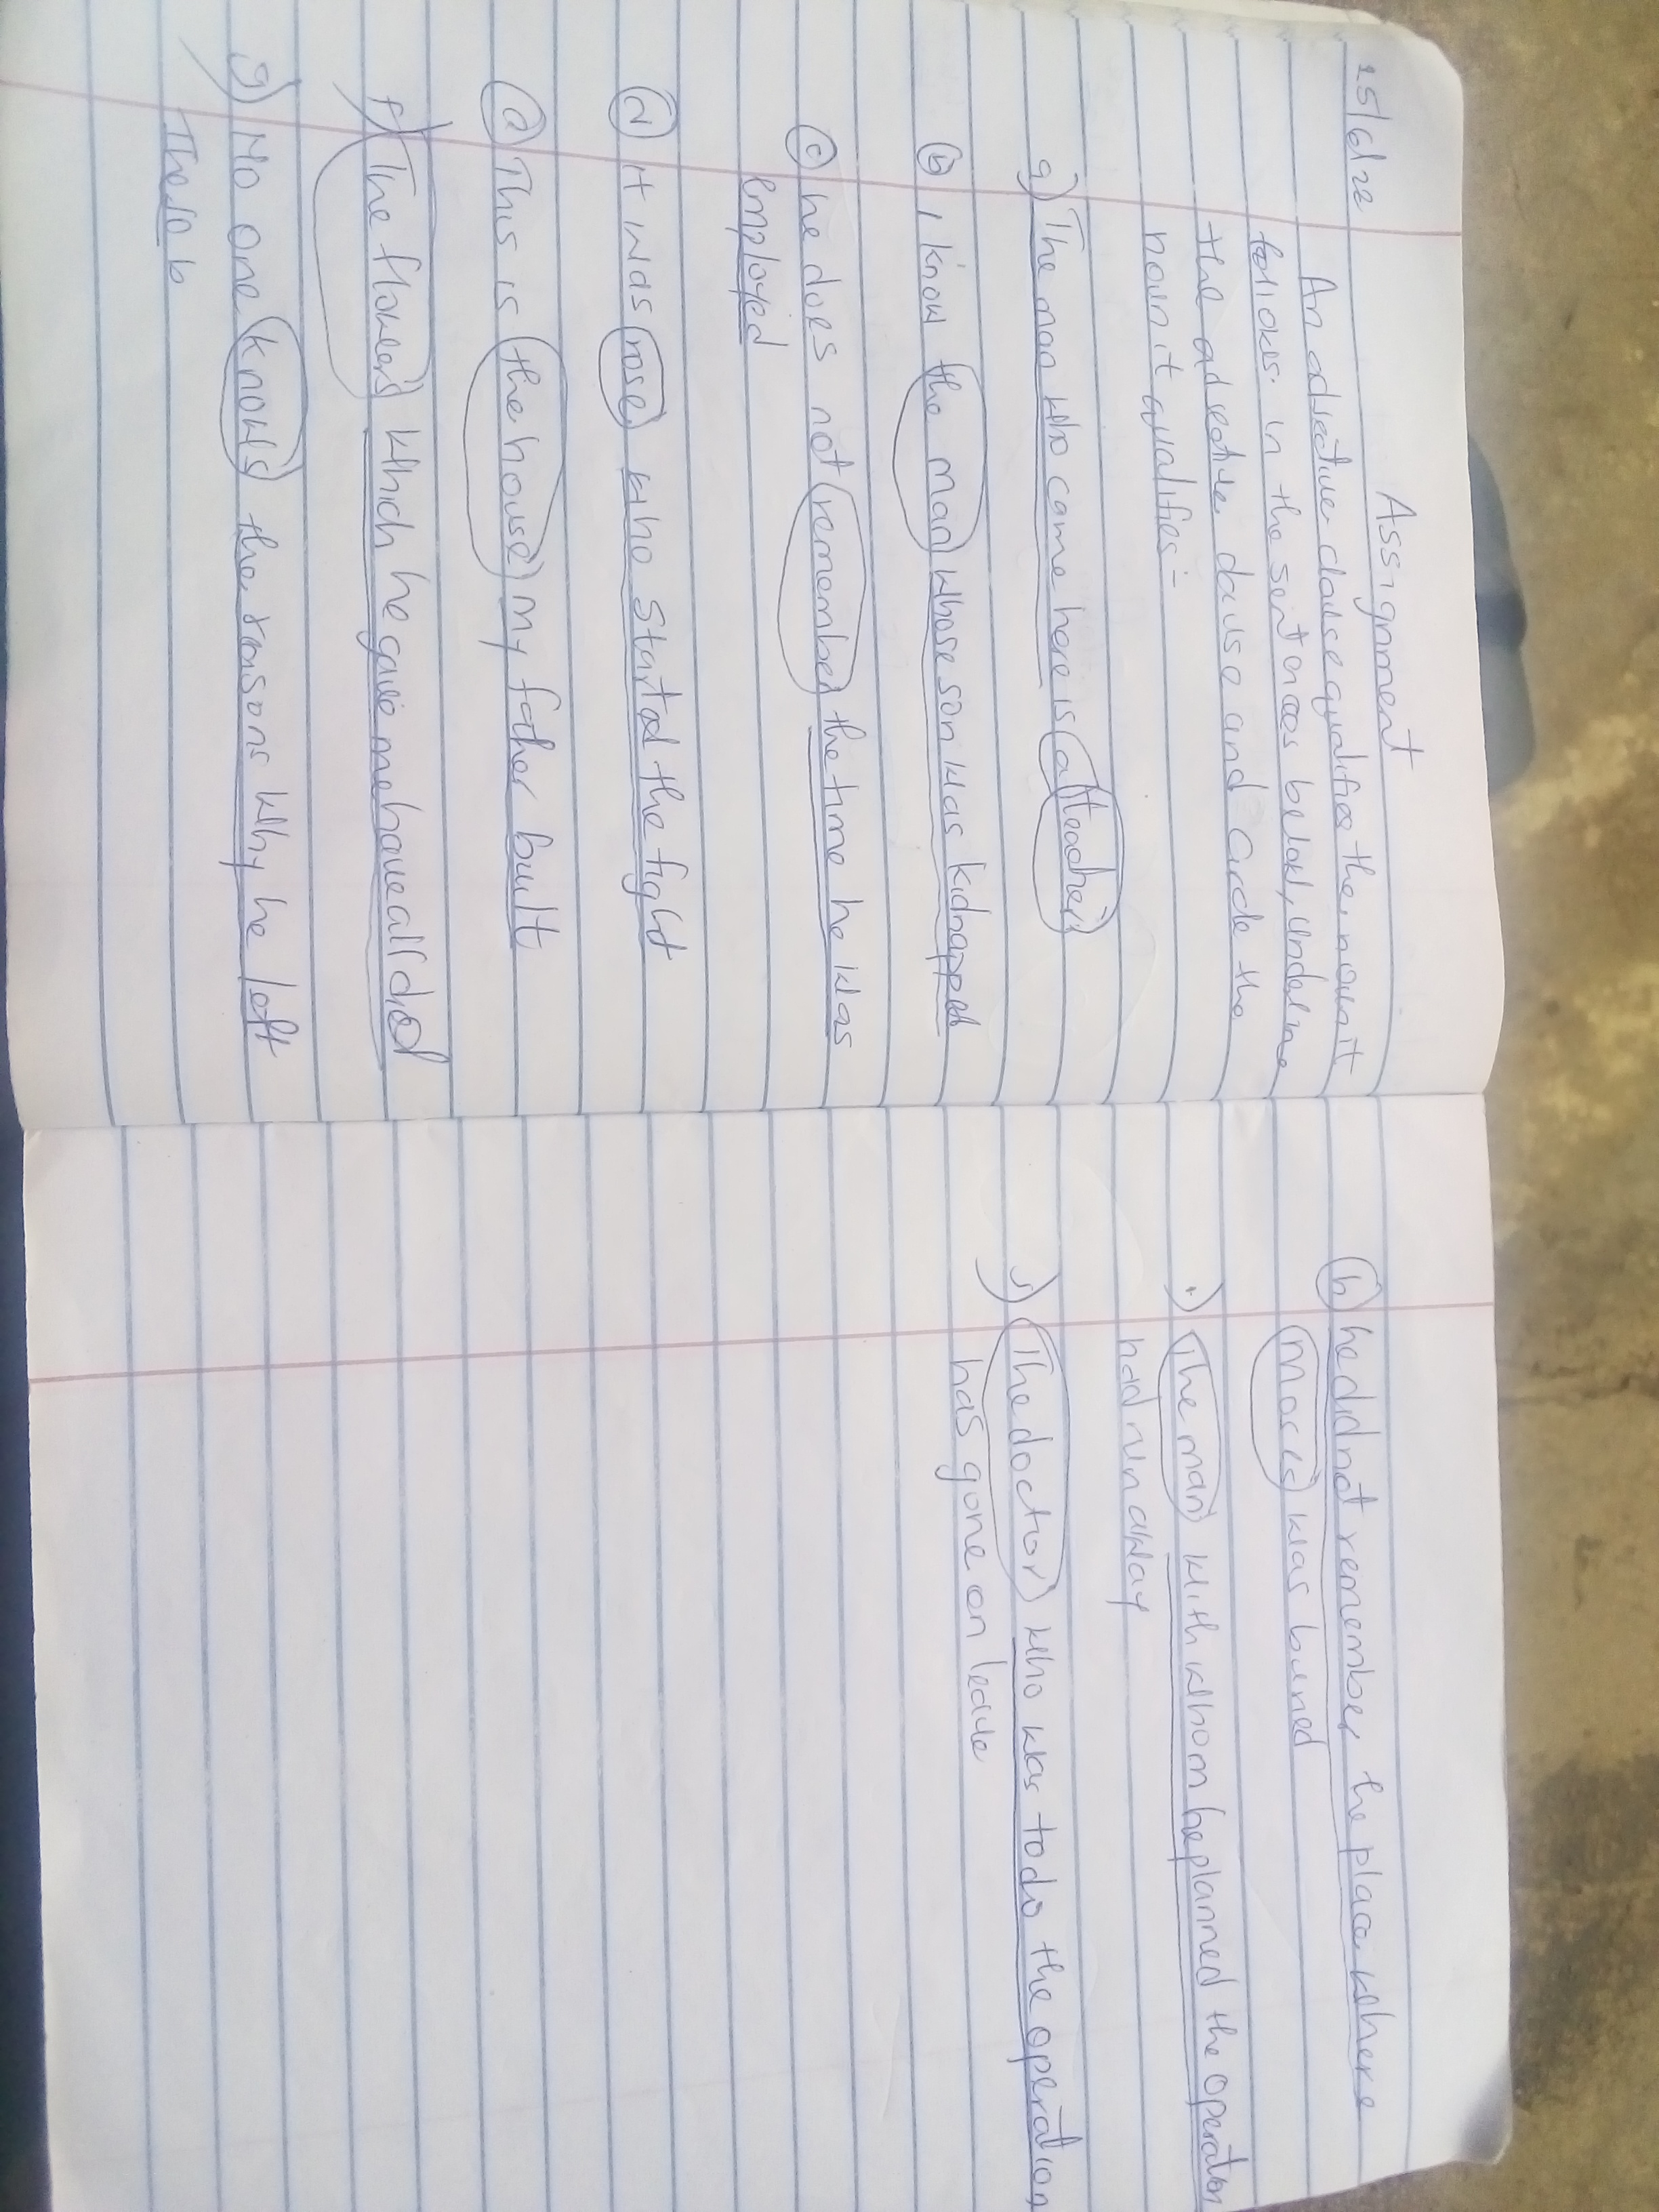 25/6/22
Assignment
An adjective clause qualifies the noun it
follows. in the sentences below, Underline
the adjective clause and circle the
noun it qualifies:-
a) The man who came here is a teacher
(b) I know the man whose son was kidnapped
(c) he does not remember the time he was
employed
(d) It was rose who started the fight
(e) This is the house my father built
f) The flowers which he gave me have all died
g) No one knows the reasons why he left
These b
(h) he did not remember the place where
Moses was buried
i) The man with whom he planned the operation
had run away
j) The doctor who was to do the operation
has gone on leave